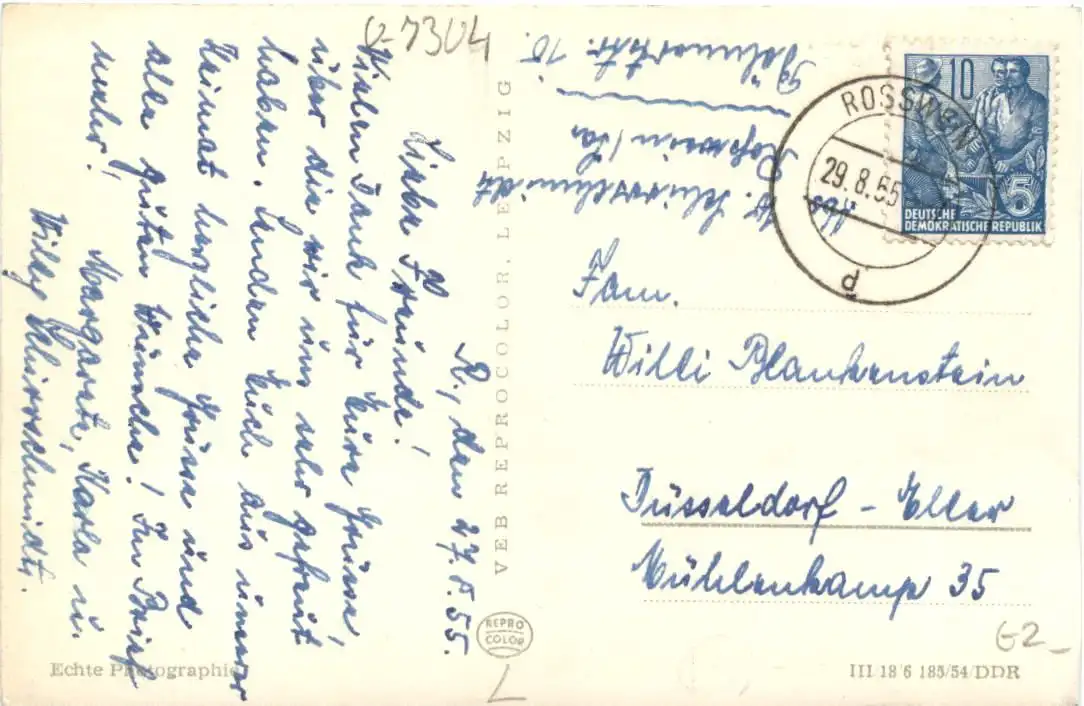 R., den 27.8.55.
Liebe Freunde!
Vielen Dank für Eure Grüsse,
über die wir uns sehr gefreut
haben. Senden Euch aus unserer
Heimat herzliche Grüsse und
alle guten Wünsche! Im Brief
mehr! Margarete, Karla u.
Willy Schirrschmidt.
0-7304
Abs.
W. Schirrschmidt
Rosswein/Sa
str. 10.
VEB REPROCOLOR, LEIPZIG
REPRO
COLOR
10
5
DEUTSCHE
DEMOKRATISCHE REPUBLIK
ROSSWEIN
29.8.55
d
Fam.
Willi Blankenstein
Düsseldorf - Eller
Mühlenkamp 35
G2
Echte Photographie
III/18/6 185/54/DDR